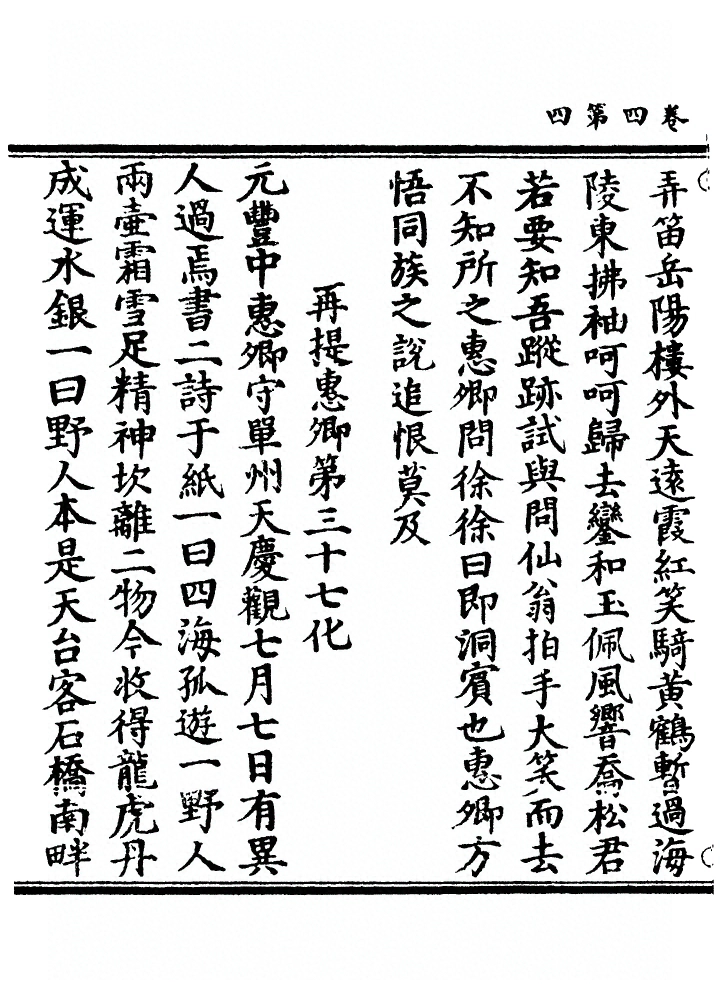 卷四第四
弄笛岳陽樓外天遠霞紅笑騎黃鶴暫過海
陵東拂袖呵呵歸去鑾和玉佩風響喬松君
若要知吾蹤跡試與問仙翁拍手大笑而去
不知所之惠卿問徐徐曰即洞賓也惠卿方
悟同族之說追恨莫及
再提惠卿第三十七化
元豐中惠卿守單州天慶觀七月七日有異
人過焉書二詩于紙一曰四海孤遊一野人
兩壺霜雪足精神坎離二物今收得龍虎丹
成運水銀一曰野人本是天台客石橋南畔